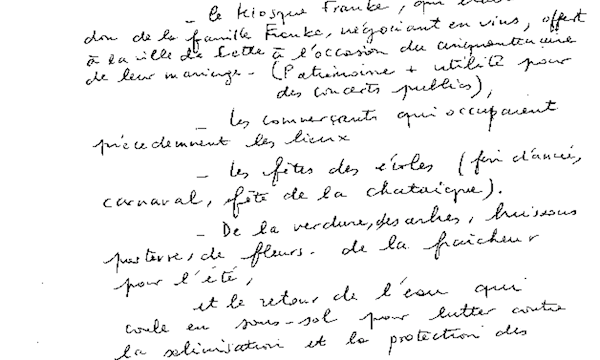 - Le Kiosque Franke, qui était
don de la famille Franke, négociant en vins, offert
à la ville de Sette à l'occasion du cinquantenaire
de leur mariage - (Patrimoine + utilité pour
des concerts publics),
- Les commerçants qui occupaient
précédemment les lieux
- Les fêtes des écoles (fin d'année,
carnaval, fête de la chataigne).
- De la verdure, des arbres, buissons
parterres de fleurs. de la fraîcheur
pour l'été,
et le retour de l'eau qui
coule en sous-sol pour lutter contre
la salinisation et la protection des